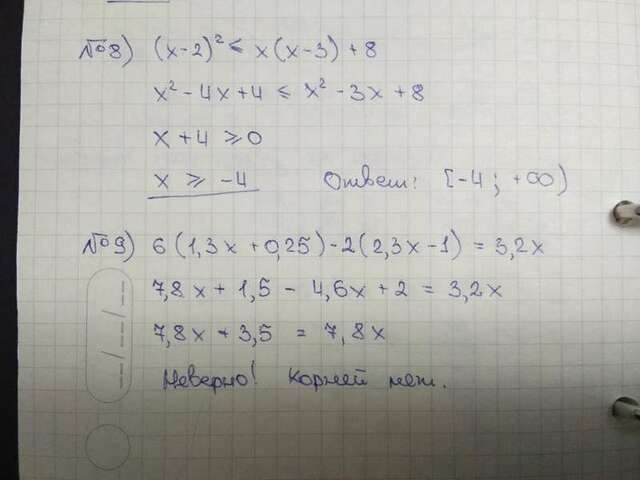 №8) (x-2)² ≤ x(x-3)+8
x² - 4x + 4 ≤ x² - 3x + 8
x + 4 ≥ 0
x ≥ -4 Ответ: [-4; +∞)
№9) 6(1,3x + 0,25) - 2(2,3x - 1) = 3,2x
7,8x + 1,5 - 4,6x + 2 = 3,2x
7,8x + 3,5 = 7,8x
Неверно! Корней нет.